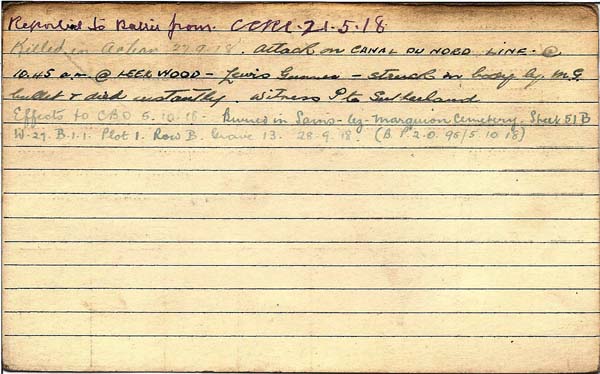 Reported to Battn from CCRC-21-5-18
Killed in Action 27.9.18. Attack on CANAL DU NORD LINE - @
10.45 a.m @ KEER WOOD - Lewis Gunner - struck in body by M.G.
bullet & died instantly. Witness Pte Sutherland
Effects to CBO 5.10.18 - Buried in Sains-lez-Marquion Cemetery. Sheet 51B
W.29.B.1.1. Plot 1. Row B. Grave 13. 28-9.18. (B.P.2.O. 95/5.10.18)